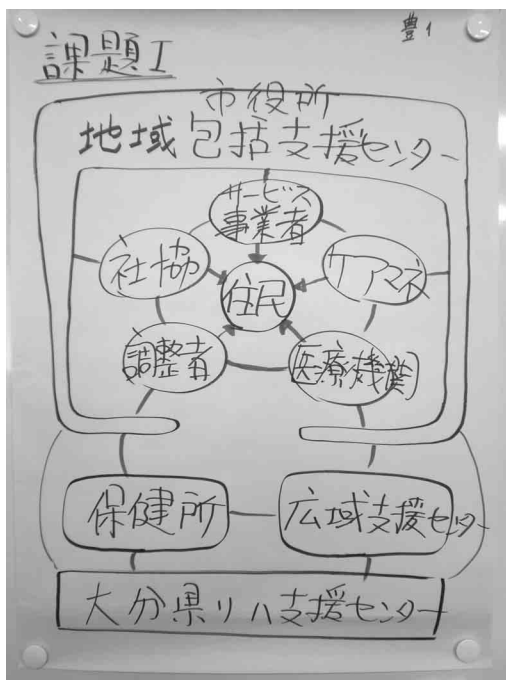 豊1
課題I
市役所
地域包括支援センター
サービス
事業者
社協
ケアマネ
住民
調整者
医療機関
保健所
広域支援センター
大分県リハ支援センター